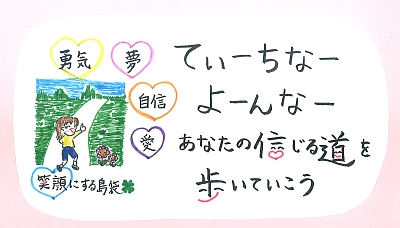 勇気
夢
自信
愛
笑顔にする島袋
てぃーちなー
よーんなー
あなたの信じる道を
歩いていこう